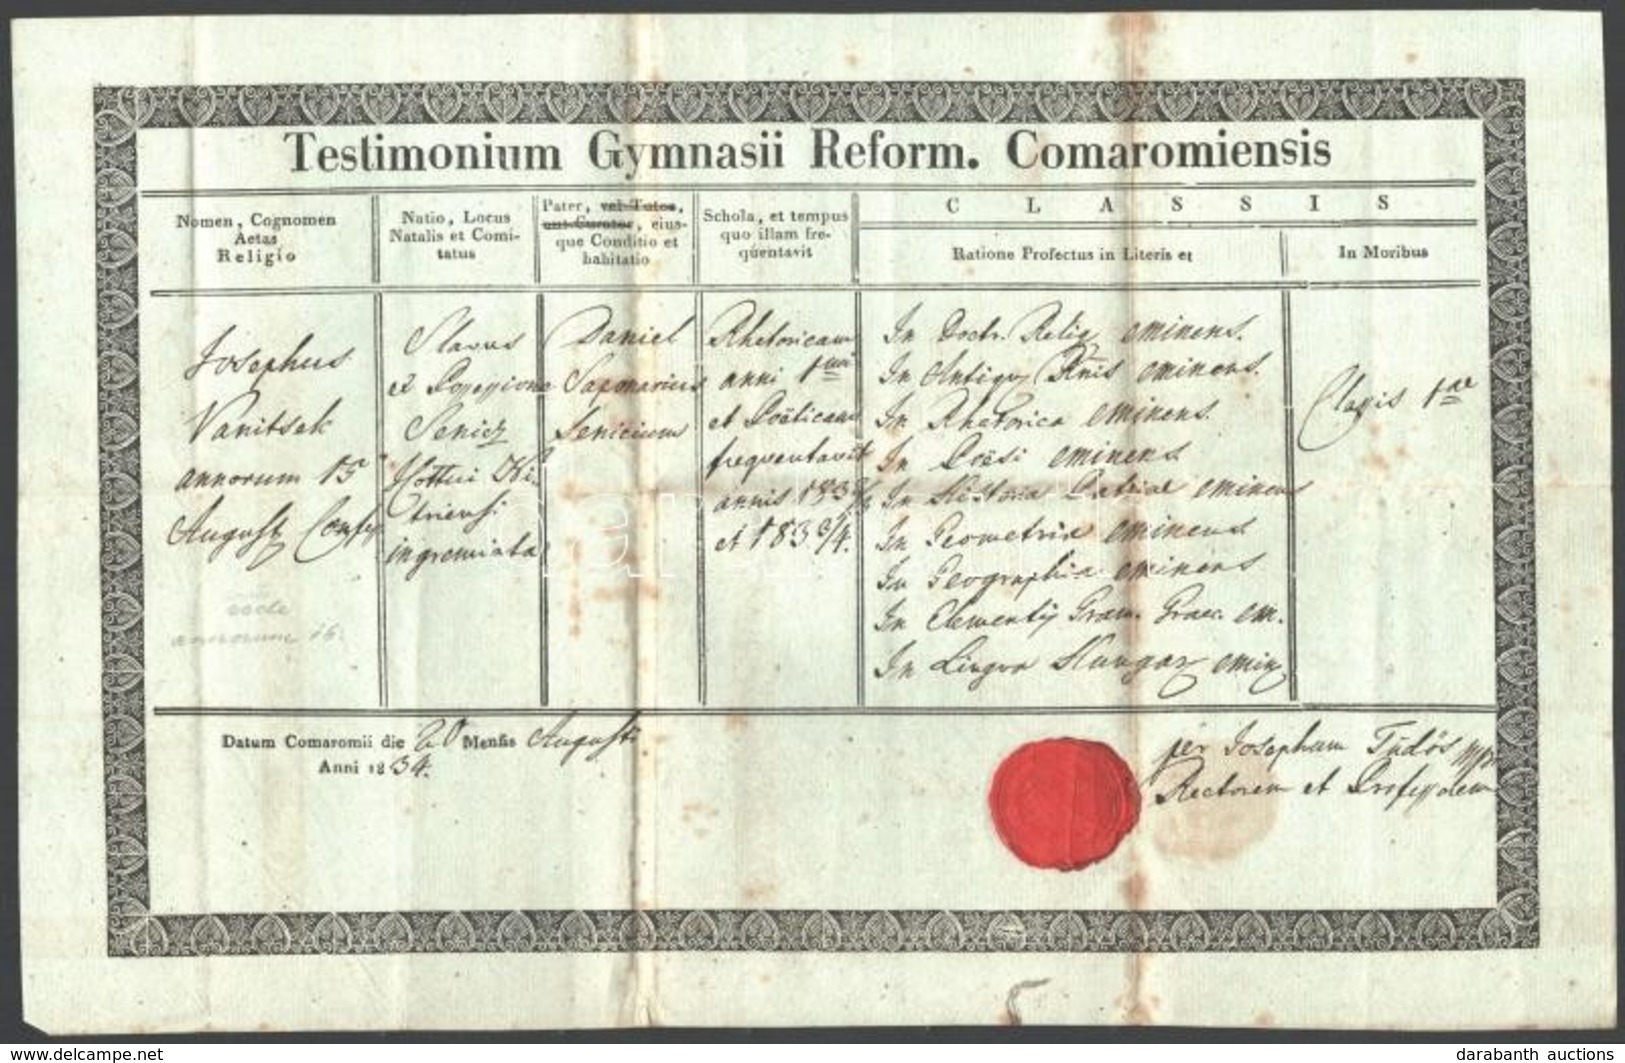 Testimonium Gymnasii Reform. Comaromiensis
Nomen, Cognomen
Aetas
Religio
Natio, Locus
Natalis et Comi-
tatus
Pater, vel Tutor,
aut Curator, eius-
que Conditio et
habitatio
Schola, et tempus
quo illam fre-
qúentavit
CLASSIS
Ratione Profectus in Literis et
In Moribus
Josephus
Vanitsek
annorum 15
August Conf
recte
annorum 16.
Slavus
Senicz
Nittriensi
ingremiata
Daniel
Saponarius
Seniciensis
Rhetoricam
anni 1mi
et Poëticam
frequentavit
annis 183 2/3
et 183 3/4.
In Doctr. Relig eminens.
In Antiqu Rnis eminens.
In Rhetorica eminens.
In Poësi eminens
In Historia Patriae eminens
In Geometria eminens
In Geographia eminens
In Elementis Gram. Graec. em.
In Lingva Hungar emin
Classis 1ae
Datum Comaromii die 20 Mensis Augusti
Anni 1834.
per Josephum Tudós mp
Rectorem et Professorem
delcampe.net
darabanth auctions